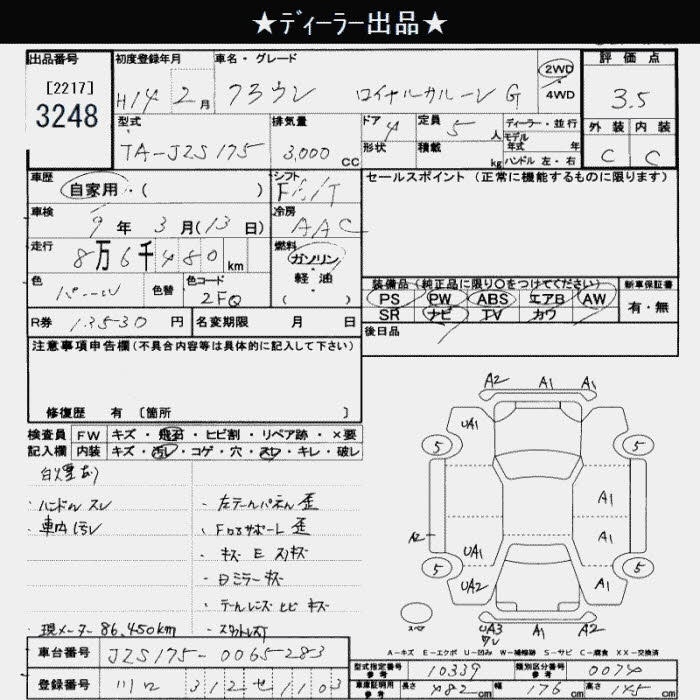 ★ディーラー出品★
出品番号
[2217]
3248
初度登録年月
H14年 2月
車名・グレード
クラウン ロイヤルサルーン G
2WD
4WD
評価点
3.5
外装 内装
C C
型式
TA-JZS175
排気量
3,000 cc
ドア 4
形状
定員 5 人
積載 kg
ディーラー・並行
モデル
年式 年
ハンドル 左・右
車歴
自家用・( )
シフト
FAT
車検
9年 3月(13日)
冷房
AAC
走行
8万6千480km
燃料
ガソリン
軽油
( )
色
パール
色替
色コード
2FQ
R券 13530 円
名変期限 月 日
セールスポイント(正常に機能するものに限ります)
装備品(純正品に限り○をつけてください)
PS PW ABS エアB AW
SR ナビ TV カワ
新車保証書
有・無
後日品
注意事項申告欄(不具合内容等は具体的に記入して下さい)
修復歴 有 〔箇所 〕
検査員
記入欄
FW キズ・飛石・ヒビ割・リペア跡・×要
内装 キズ・汚レ・コゲ・穴・スレ・キレ・破レ
・ハンドル スレ
・車内 汚レ
・左テールパネル 歪
・Fロアサポート 歪
・キズ E スリキズ
・Dミラー キズ
・テールレンズ ヒビ キズ
・現メーター 86,450km
・スタットレス付
A2 A1 A1
UA1
5 5
A1
A2 A1
UA1
5 A1 5
UA2
UA3 A1 A2
スペア
A-キズ E-エクボ U-凹み W-補修跡 S-サビ C-腐食 XX-交換済
車台番号 JZS175-0065283
登録番号 川口 312 せ 1103
型式指定番号 参考 10339
類別区分番号 参考 0074
車庫証明用 参考 長さ 482cm 幅 176cm 高さ 145cm